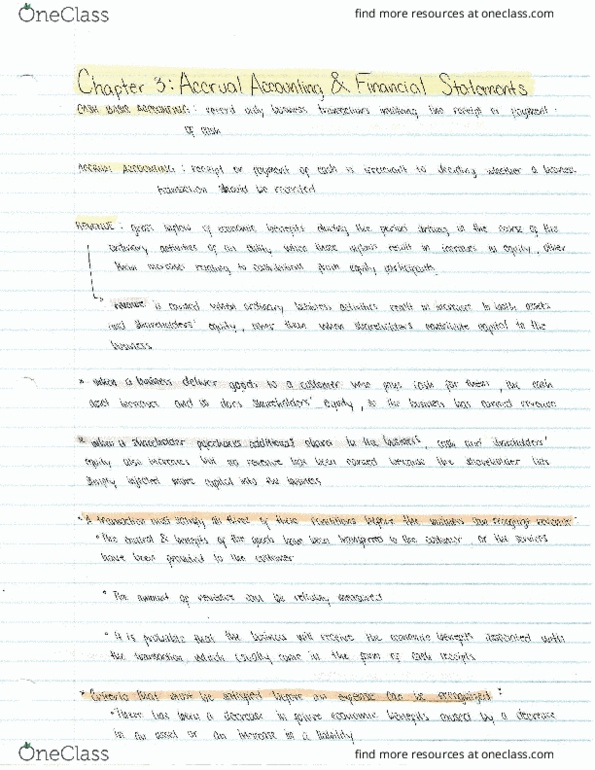 OneClass
find more resources at oneclass.com
Chapter 3: Accrual Accounting & Financial Statements
CASH BASIS ACCOUNTING: record only business transactions involving the receipt or payment
of cash
ACCRUAL ACCOUNTING: receipt or payment of cash is irrelevant to deciding whether a business
transaction should be recorded
REVENUE: gross inflow of economic benefits during the period arising in the course of the
ordinary activities of an entity when those inflows result in increases in equity, other
than increases relating to contributions from equity participants
revenue is earned when ordinary business activities result in increase to both assets
and shareholders' equity, other than when shareholders contribute capital to the
business
* when a business deliver goods to a customer who pays cash for them, the cash
asset increases and so does shareholders' equity, so the business has earned revenue
* when a shareholder purchases additional shares in the business, cash and shareholders'
equity also increases but no revenue has been earned because the shareholder has
simply injected more capital into the business
* A transaction must satisfy all three of these conditions before the business can recognize revenue:
* The control & benefits of the goods have been transferred to the customer or the services
have been provided to the customer
* The amount of revenue can be reliably measured
* It is probable that the business will receive the economic benefits associated with
the transaction, which usually come in the form of cash receipts
* Criteria that must be satisfied before an expense can be recognized:
* There has been a decrease in future economic benefits caused by a decrease
in an asset or an increase in a liability
OneClass
find more resources at oneclass.com